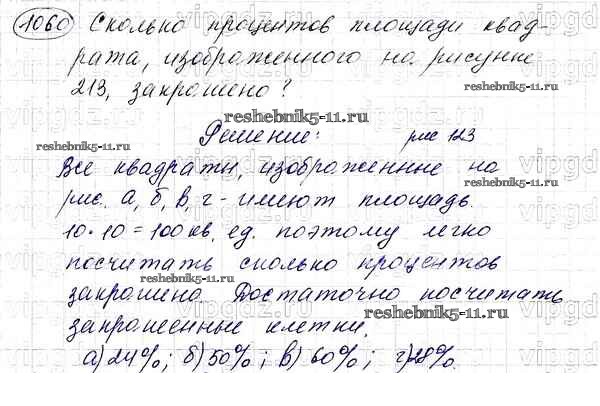 1060 Сколько процентов площади квад-
рата, изображенного на рисунке
213, закрашено?
reshebnik5-11.ru
reshebnik5-11.ru
Решение: рис 123
Все квадраты, изображенные на
reshebnik5-11.ru
рис. а, б, в, г - имеют площадь.
10·10=100 кв. ед. поэтому легко
посчитать сколько процентов
reshebnik5-11.ru
закрашено. Достаточно посчитать
reshebnik5-11.ru
закрашенные клетки.
а) 24%; б) 50%; в) 60%; г) 28%.